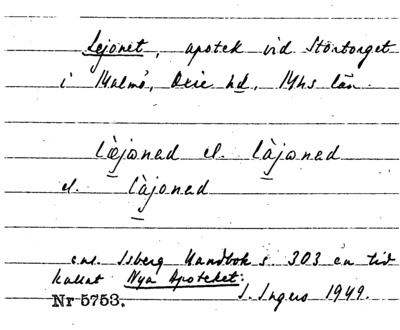 Lejonet, apotek vid Stortorget
i Malmö, Oxie hd, Mhs län.
læ̀jɔnad el. làjɔnad
el. làjoned
enl. Isberg Handbok s. 303 en tid
kallat Nya Apoteket.
Nr 5753. I. Ingers 1949.